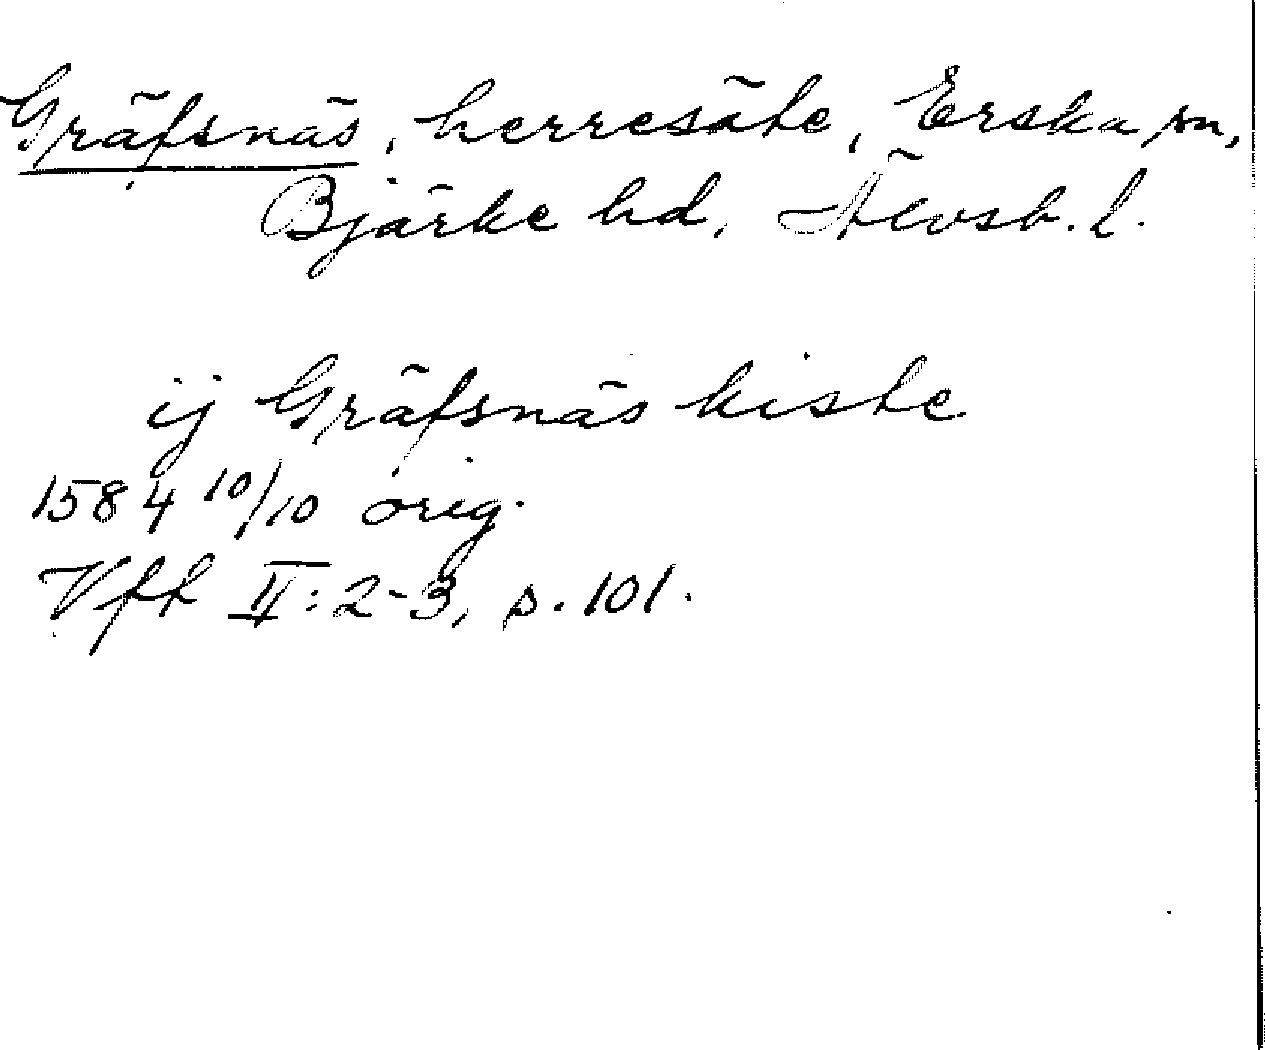 Gräfsnäs, herresäte, Erska sn,
Bjärke hd, Älvsb. l.
ij Gräfsnäs kiste
1584 10/10 orig.
Vff II: 2-3, s. 101.